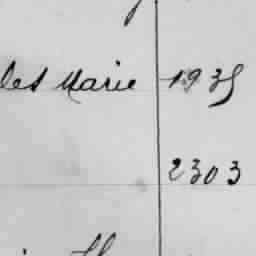 les Marie 1935
2303